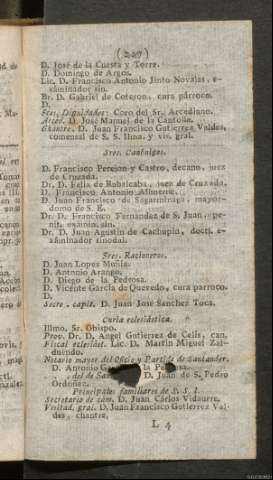 (247)
D. José de la Cuesta y Torre.
D. Domingo de Argos.
Lic. D. Francisco Antonio Jinto Novajas, e-
xâminador sin.
Br. D. Gabriel de Coteron, cura párroco.
D.
Sres. Dignidades: Coro del Sr. Arcediano.
Arced. D. José Manuel de la Cantolla.
Chantre. D. Juan Francisco Gutierrez Valdes,
comensal de S. S. Illma. y vis. gral.
Sres. Canónigos.
D. Francisco Perejon y Castro, decano, juez
de Cruzada.
Dr. D. Felix de Rabalcaba, juez de Cruzada.
D. Francisco Antonio
D. Juan Francisco de Sagarminaga, mayor-
domo de S. E.
Dr. D. Francisco Fernandez de S. Juan, pe-
nit. exâmin. sin.
Dr. D. Juan Agustin de Cachupin, doct. e-
xâminador sinodal.
Sres. Racioneros.
D. Juan Lopez Muñia.
D. Antonio Arango.
D. Diego de la Pedrosa.
D. Vicente García de Quevedo, cura parroco.
D.
Secre. capit. D. Juan José Sanchez Toca.
Curia eclesiástica.
Illmo. Sr. Obispo.
Prov. Dr. D. Angel Gutierrez de Celis, can.
Fiscal eclesiást. Lic. D. Martin Miguel Zal-
duendo.
Notario mayor del Oficio y Partido de Santander.
D. Antonio la
del de D. Juan de S. Pedro
Ordoñez.
Principales familiares de S. S. I.
Secretario de cám. D. Juan, Carlos Vidaurre.
Visitad. gral. D. Juan Francisco Gutierrez Val-
des, chantre.
L 4